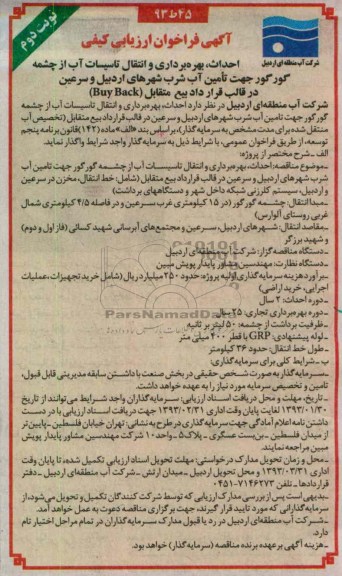 ۴۵ط۹۳
نوبت دوم
شرکت آب منطقه ای اردبیل
آگهی فراخوان ارزیابی کیفی
احداث، بهره‌برداری و انتقال تاسیسات آب از چشمه
گورگور جهت تأمین آب شرب شهرهای اردبیل و سرعین
در قالب قرارداد بیع متقابل (Buy Back)
شرکت آب منطقه‌ای اردبیل در نظر دارد احداث، بهره‌برداری و انتقال تاسیسات آب از چشمه
گورگور جهت تامین آب شرب شهرهای اردبیل و سرعین در قالب قرارداد بیع متقابل (تخصیص آب
منتقل شده برای مدت مشخص به سرمایه گذار)، براساس بند «الف» ماده (۱۴۲) قانون برنامه پنجم
توسعه، از طریق فراخوان عمومی، با شرایط ذیل به سرمایه گذار واجد شرایط واگذار نماید.
الف ـ شرح مختصر از پروژه:
ـ موضوع مناقصه: احداث، بهره‌برداری و انتقال تاسیسات آب از چشمه گورگور جهت تامین آب
شرب شهرهای اردبیل و سرعین در قالب قرارداد بیع متقابل (شامل: خط انتقال، مخزن در سرعین
و اردبیل، سیستم کلرزنی شبکه داخل شهر و دستگاههای برداشت)
ـ مبدا انتقال: چشمه گورگور (در ۱۵ کیلومتری غرب سرعین و در فاصله ۴/۵ کیلومتری شمال
غربی روستای آلوارس)
ـ مقاصد انتقال: شهرهای اردبیل، سرعین و مجتمع‌های آبرسانی شهید کسائی (فاز اول و دوم)
و شهید برزگر
ـ دستگاه مناقصه گزار: شرکت آب منطقه‌ای اردبیل
ـ دستگاه نظارت: مهندسین مشاور پایدار پویش مبین
ـ برآورد هزینه سرمایه گذاری اولیه پروژه: حدود ۲۵۰ میلیارد ریال (شامل خرید تجهیزات، عملیات
اجرایی، خرید اراضی)
ـ دوره احداث: ۲ سال
ـ دوره بهره‌برداری تجاری: ۲۵ سال
ـ ظرفیت برداشت از چشمه: ۵۰ لیتر بر ثانیه
ـ لوله پیشنهادی: GRP با قطر ۴۰۰ میلی متر
ـ طول خط انتقال: حدود ۳۶ کیلومتر
ب ـ شرایط کلی برای سرمایه گذاری:
ـ سرمایه گذار به صورت شخص حقیقی در بخش صنعت با داشتن سابقه مدیریتی قابل قبول،
تامین و تخصیص سرمایه مورد نیاز را به عهده خواهد داشت.
ـ تاریخ، مهلت و محل دریافت اسناد ارزیابی: سرمایه گذاران واجد شرایط می‌توانند از تاریخ
۱۳۹۳/۰۱/۳۰ لغایت پایان وقت اداری ۱۳۹۳/۰۲/۳۱ جهت دریافت اسناد ارزیابی با در دست
داشتن نامه اعلام آمادگی جهت سرمایه گذاری در طرح به نشانی: تهران خیابان فلسطین ـ پایین‌تر
از میدان فلسطین ـ بن‌بست عسگری ـ پلاک۵ ـ واحد۱۰ شرکت مهندسین مشاور پایدار پویش
مبین مراجعه نمایند.
ـ محل و زمان تحویل مدارک درخواستی: مهلت تحویل اسناد ارزیابی تکمیل شده، تا پایان وقت
اداری ۱۳۹۳/۰۳/۳۱ و محل تحویل اردبیل ـ میدان ارتش ـ شرکت آب منطقه‌ای اردبیل ـ دفتر
قراردادها ـ تلفن ۷۱۴۶۲۷۳-۰۴۵۱
ـ بدیهی است پس از بررسی مدارک ارزیابی که توسط شرکت کنندگان تکمیل و تحویل می‌شود، از
سرمایه گذارانی که مورد تایید قرار گیرند، جهت برگزاری مناقصه دعوت به عمل خواهد آمد.
ـ شرکت آب منطقه‌ای اردبیل در رد یا قبول مدارک سرمایه گذاران در تمام مراحل اختیار تام
دارد.
ـ هزینه آگهی بر عهده برنده مناقصه (سرمایه گذار) خواهد بود.
ParsNamadData